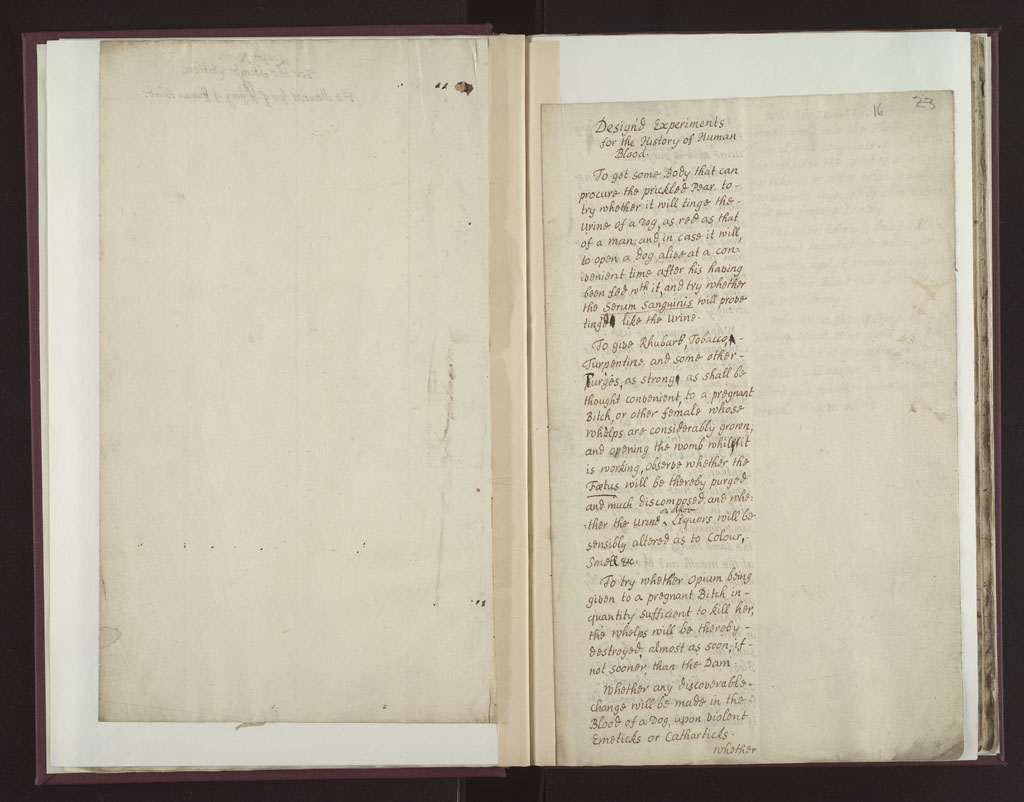 16
23
Design'd Experiments
for the History of Human
Blood.
To get some Body that can
procure the prickled Pear, to-
try whether it will tinge the-
Urine of a Dog, as red as that
of a man; and in case it will,
to open a dog alive at a con-
venient time after his having
been fed wth it, and try whether
the Serum Sanguinis will prove
ting'd like the Urine.
To give Rhubarb, Tobacco,-
Turpentine, and some other-
Purges, as strong as shall be
thought convenient, to a pregnant
Bitch, or other female whose
whelps are considerably grown;
and opening the womb whilst it
is working, observe whether the
Fœtus will be thereby purged
and much discomposed, and whe-
-ther the Urine or other Liquors will be
sensibly altered as to Colour,
Smell &c.
To try whether Opium being
given to a pregnant Bitch in-
quantity sufficient to kill her,
the whelps will be thereby-
destroyed, almost as soon, if-
not sooner, than the Dam.
Whether any discoverable-
change will be made in the-
Blood of a Dog, upon violent
Emeticks or Catharticks.
whether